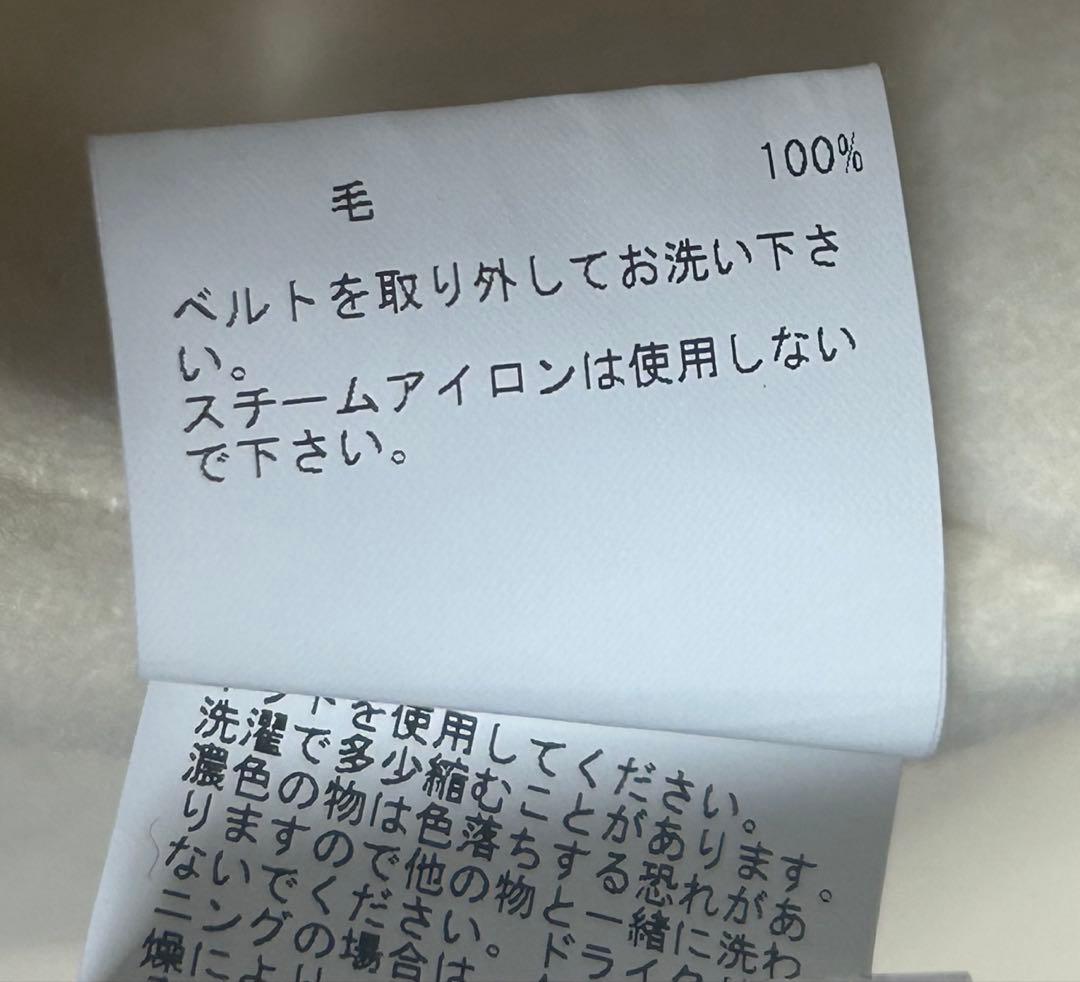 毛 100%
ベルトを取り外してお洗い下さ
い。
スチームアイロンは使用しない
で下さい。
を使用してください。
洗濯で多少縮むことがあります。
濃色の物は色落ちする恐れがあ
りますので他の物と一緒に洗わ
ないでください。
ニングの場合は
燥に